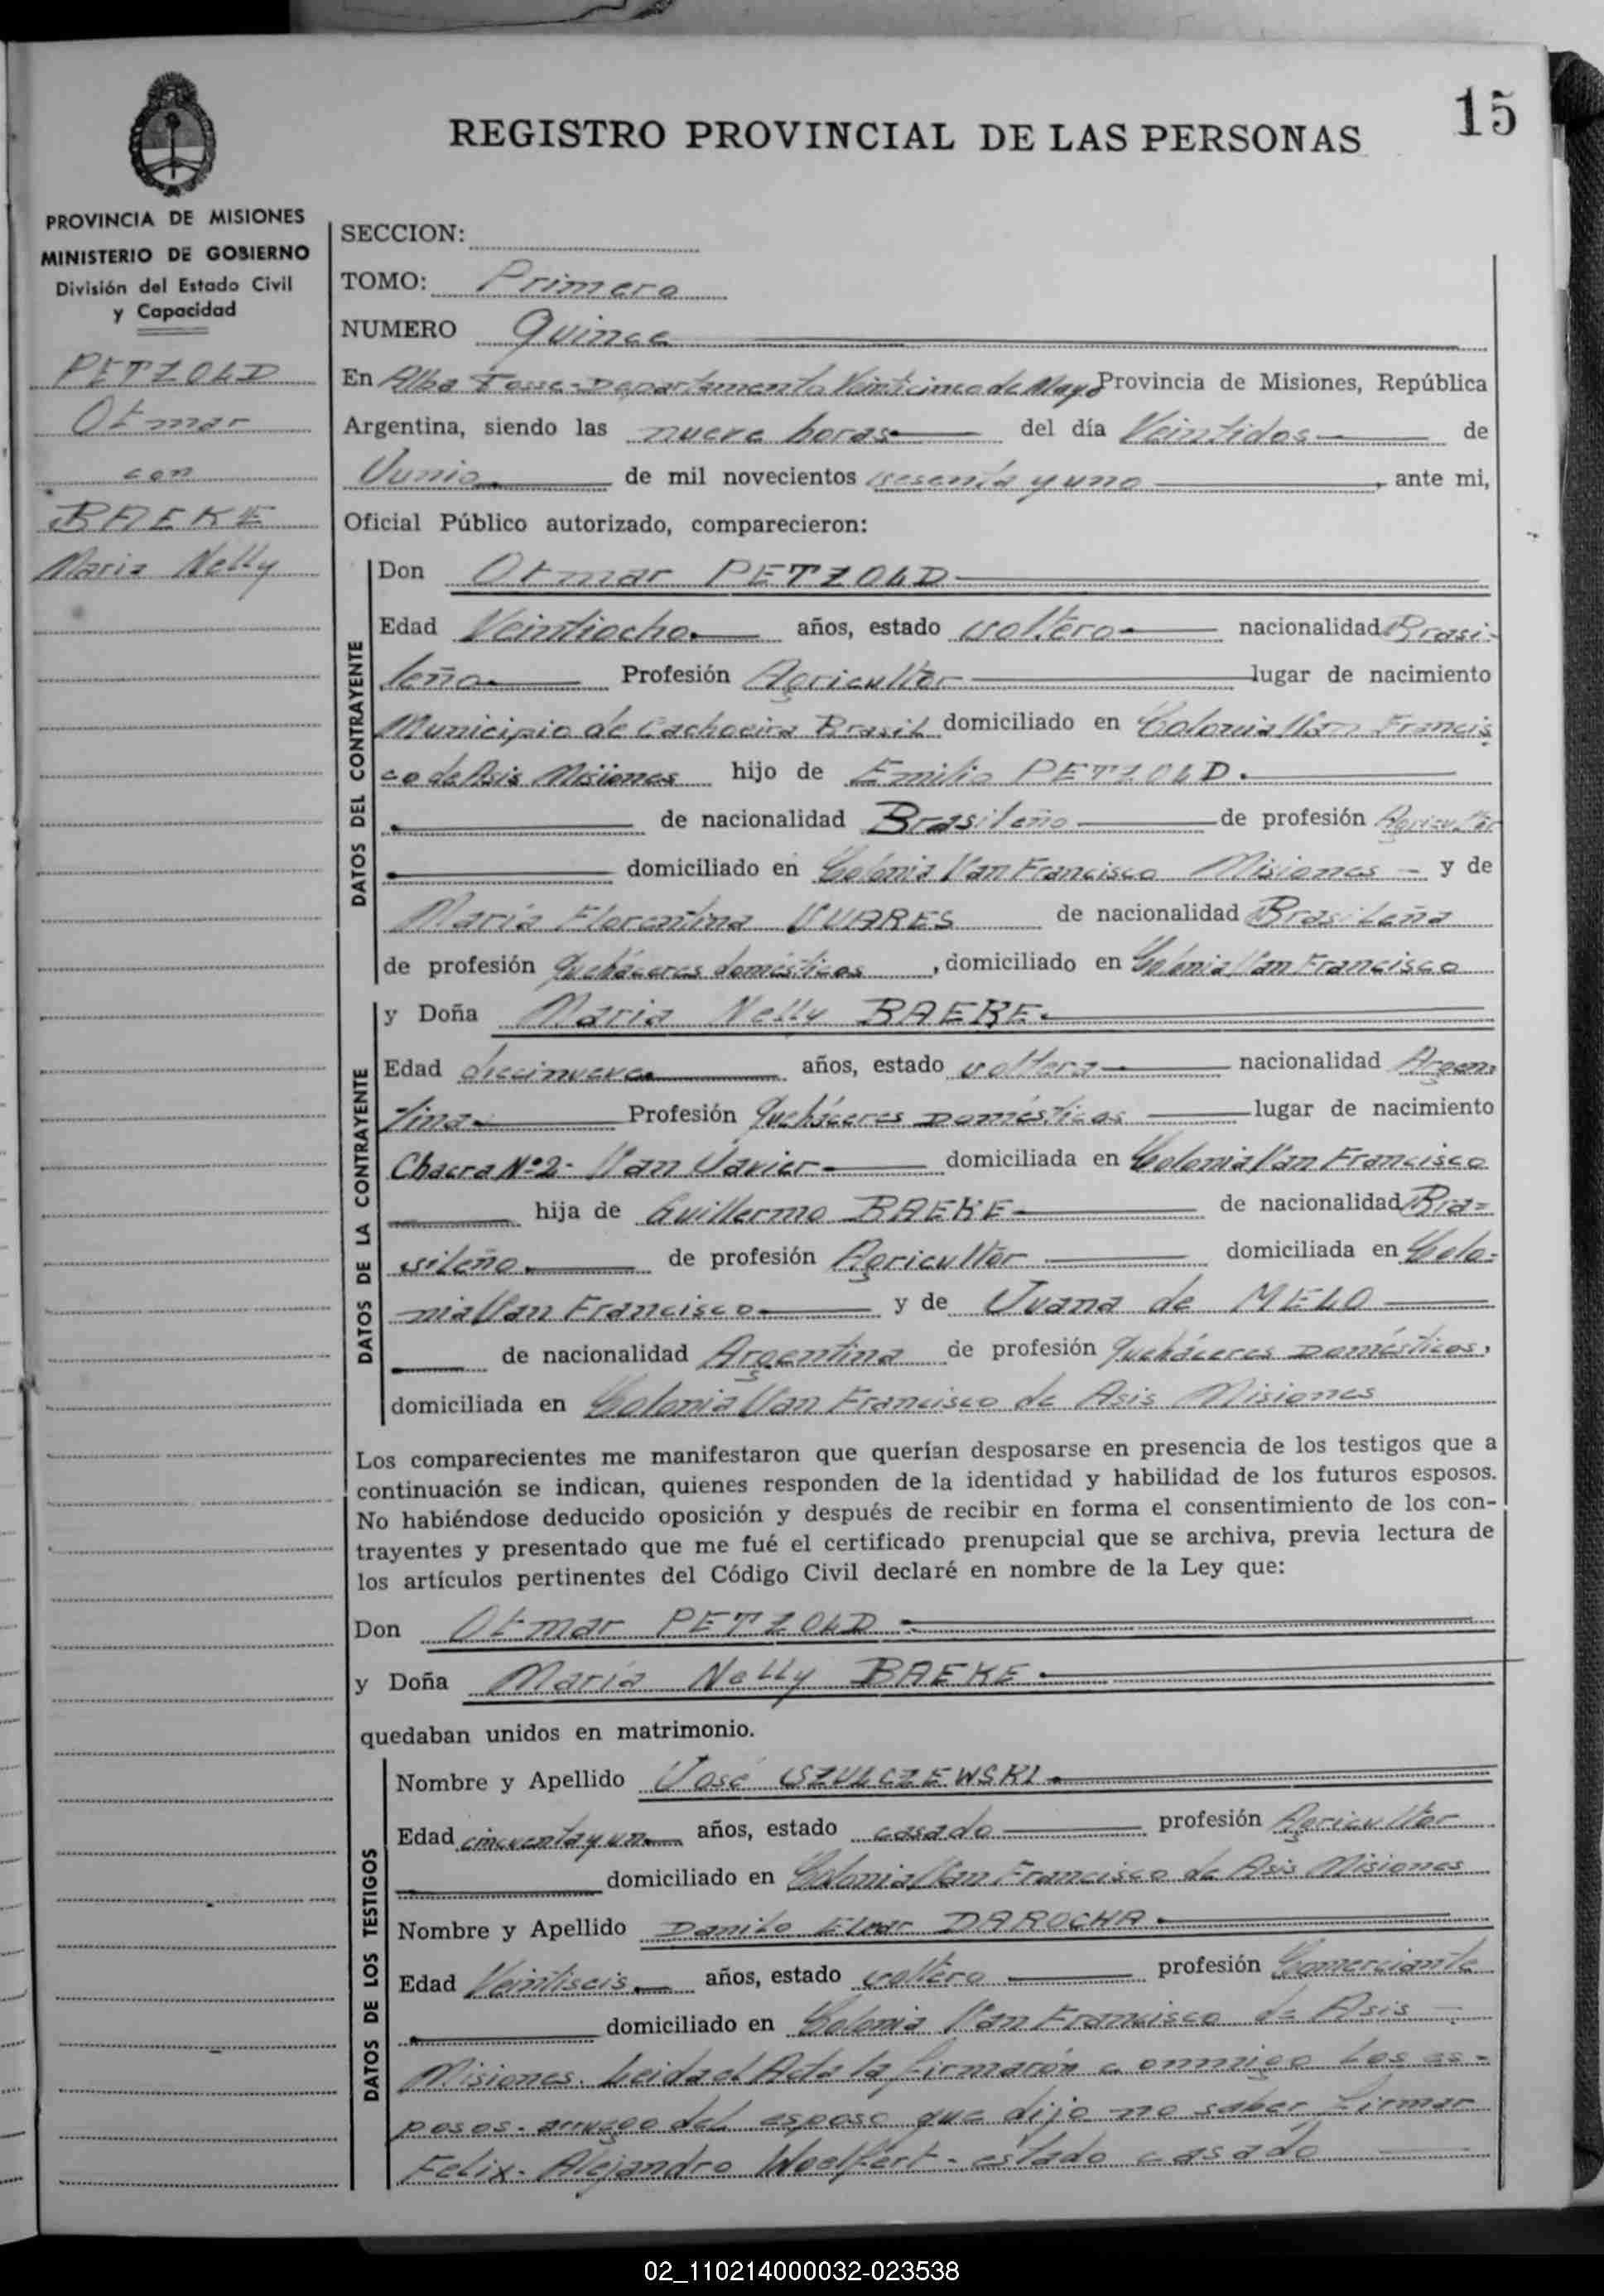 15
REGISTRO PROVINCIAL DE LAS PERSONAS
PROVINCIA DE MISIONES
MINISTERIO DE GOBIERNO
División del Estado Civil
y Capacidad
PETZOLD
Otmar
con
BAEKE
Maria Nelly
SECCION:
TOMO: Primero
NUMERO Quince
En Alba Posse-Departamento Veinticinco de Mayo Provincia de Misiones, República
Argentina, siendo las nueve horas del día Veintidos de
Junio de mil novecientos sesenta y uno, ante mi,
Oficial Público autorizado, comparecieron:
DATOS DEL CONTRAYENTE
Don Otmar PETZOLD
Edad Veintiocho años, estado soltero nacionalidad Brasi-
leña Profesión Agricultor lugar de nacimiento
Municipio de Cachoeira Brasil domiciliado en Colonia San Francis
co de Asis Misiones hijo de Emilio PETZOLD.
de nacionalidad Brasileño de profesión Agricultor
domiciliado en Colonia San Francisco Misiones - y de
María Florentina SUARES de nacionalidad Brasileña
de profesión Quehaceres domésticos, domiciliado en Colonia San Francisco
DATOS DE LA CONTRAYENTE
y Doña Maria Nelly BAEKE.
Edad diecinueve años, estado soltera nacionalidad Argen-
tina Profesión Quehaceres Domésticos lugar de nacimiento
Chacra Nº2- San Javier domiciliada en Colonia San Francisco
hija de Guillermo BAEKE de nacionalidad Bra=
sileño de profesión Agricultor domiciliada en Colo=
nia San Francisco y de Juana de MELO
de nacionalidad Argentina de profesión Quehaceres Domésticos,
domiciliada en Colonia San Francisco de Asis Misiones
Los comparecientes me manifestaron que querían desposarse en presencia de los testigos que a
continuación se indican, quienes responden de la identidad y habilidad de los futuros esposos.
No habiéndose deducido oposición y después de recibir en forma el consentimiento de los con-
trayentes y presentado que me fué el certificado prenupcial que se archiva, previa lectura de
los artículos pertinentes del Código Civil declaré en nombre de la Ley que:
Don Otmar PETZOLD
y Doña María Nelly BAEKE
quedaban unidos en matrimonio.
DATOS DE LOS TESTIGOS
Nombre y Apellido José SZULCZEWSKI
Edad cincuenta y un años, estado casado profesión Agricultor
domiciliado en Colonia San Francisco de Asis Misiones
Nombre y Apellido Danilo DAROCHA
Edad Veintiseis años, estado soltero profesión Comerciante
domiciliado en Colonia San Francisco de Asis
Misiones. Leida el Acta la firmarón conmigo los es-
posos- arruego del esposo que dijo no saber firmar
Felix- Alejandro Woelfert- estado casado
02_110214000032-023538